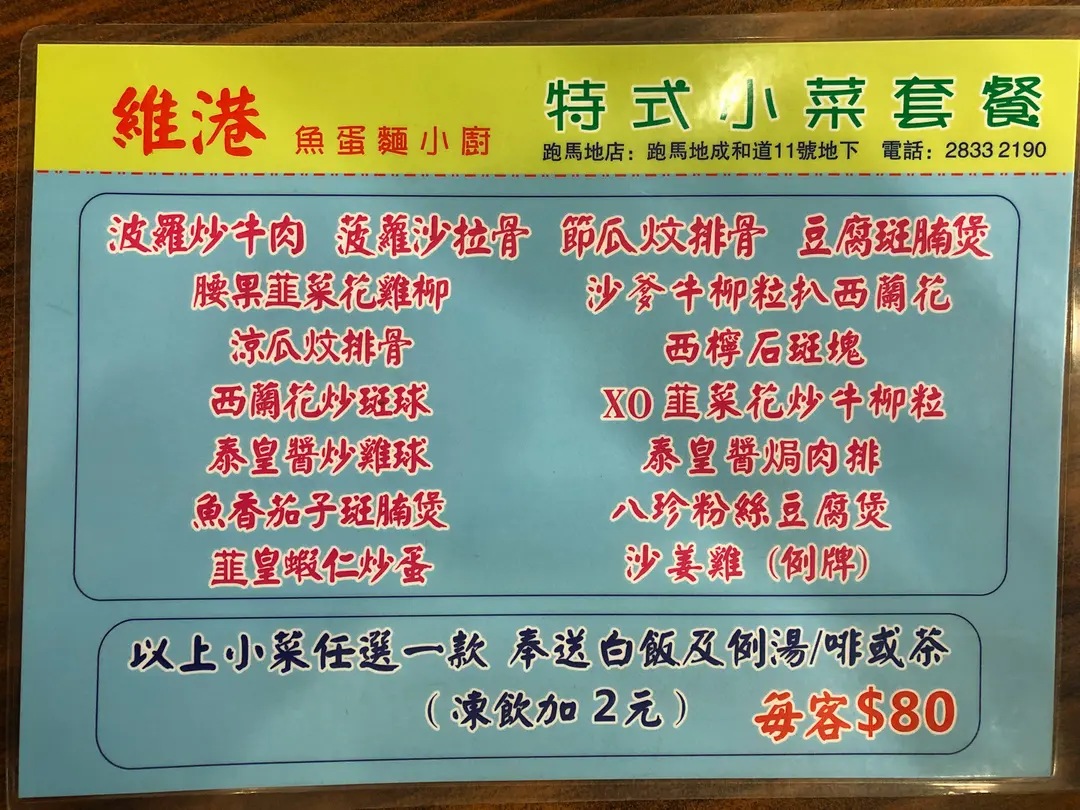 維港 魚蛋麵小廚 特式小菜套餐
跑馬地店：跑馬地成和道11號地下 電話：2833 2190
波羅炒牛肉 菠蘿沙拉骨 節瓜炆排骨 豆腐斑腩煲
腰果韮菜花雞柳 沙爹牛柳粒扒西蘭花
涼瓜炆排骨 西檸石斑塊
西蘭花炒斑球 XO韮菜花炒牛柳粒
泰皇醬炒雞球 泰皇醬焗肉排
魚香茄子斑腩煲 八珍粉絲豆腐煲
韮皇蝦仁炒蛋 沙姜雞（例牌）
以上小菜任選一款 奉送白飯及例湯/啡或茶
（凍飲加2元） 每客$80